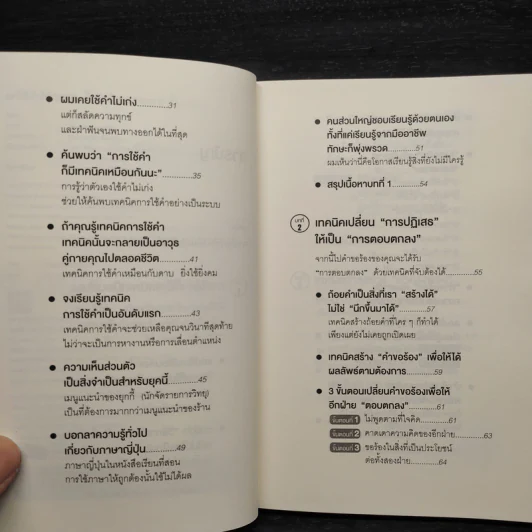 ● ผมเคยใช้คำไม่เก่ง............31
แต่ก็สลัดความทุกข์
และฝ่าฟันจนพบทางออกได้ในที่สุด
● ค้นพบว่า "การใช้คำ
ก็มีเทคนิคเหมือนกันนะ"..........35
การรู้ว่าตัวเองใช้คำไม่เก่ง
ช่วยให้ค้นพบเทคนิคการใช้คำอย่างเป็นระบบ
● ถ้าคุณรู้เทคนิคการใช้คำ
เทคนิคนั้นจะกลายเป็นอาวุธ
คู่กายคุณไปตลอดชีวิต............41
เทคนิคการใช้คำเหมือนกับดาบ ยิ่งใช้ยิ่งคม
● จงเรียนรู้เทคนิค
การใช้คำเป็นอันดับแรก............43
เทคนิคการใช้คำจะช่วยเหลือคุณจนวินาทีสุดท้าย
ไม่ว่าจะเป็นการหางานหรือการเลื่อนตำแหน่ง
● ความเห็นส่วนตัว
เป็นสิ่งจำเป็นสำหรับยุคนี้............45
เมนูแนะนำของยุกกี้ (นักจัดรายการวิทยุ)
เป็นที่ต้องการมากกว่าเมนูแนะนำของร้าน
● บอกลาความรู้ทั่วไป
เกี่ยวกับภาษาญี่ปุ่น............49
ภาษาญี่ปุ่นในหนังสือเรียนที่สอน
การใช้ภาษาให้ถูกต้องนั้นใช้ไม่ได้ผล
● คนส่วนใหญ่ชอบเรียนรู้ด้วยตนเอง
ทั้งที่แค่เรียนรู้จากมืออาชีพ
ทักษะก็พุ่งพรวด............51
ผมเห็นว่านี่คือโอกาสเรียนรู้สิ่งที่ยังไม่มีใครรู้
● สรุปเนื้อหาบทที่ 1............54
บทที่ 2 เทคนิคเปลี่ยน "การปฏิเสธ"
ให้เป็น "การตอบตกลง"
จากนี้ไปคำขอร้องของคุณจะได้รับ
"การตอบตกลง" ด้วยเทคนิคที่จับต้องได้............55
● ถ้อยคำเป็นสิ่งที่เรา "สร้างได้"
ไม่ใช่ "นึกขึ้นมาได้"............57
เทคนิคสร้างถ้อยคำที่ใคร ๆ ก็ทำได้
เพียงแต่ยังไม่เคยถูกเปิดเผย
● เทคนิคสร้าง "คำขอร้อง" เพื่อให้ได้
ผลลัพธ์ตามต้องการ............59
● 3 ขั้นตอนเปลี่ยนคำขอร้องเพื่อให้
อีกฝ่าย "ตอบตกลง"............61
ขั้นตอนที่ 1 ไม่พูดตามที่ใจคิด............61
ขั้นตอนที่ 2 คาดเดาความคิดของอีกฝ่าย............63
ขั้นตอนที่ 3 ขอร้องในสิ่งที่เป็นประโยชน์
ต่อทั้งสองฝ่าย............64